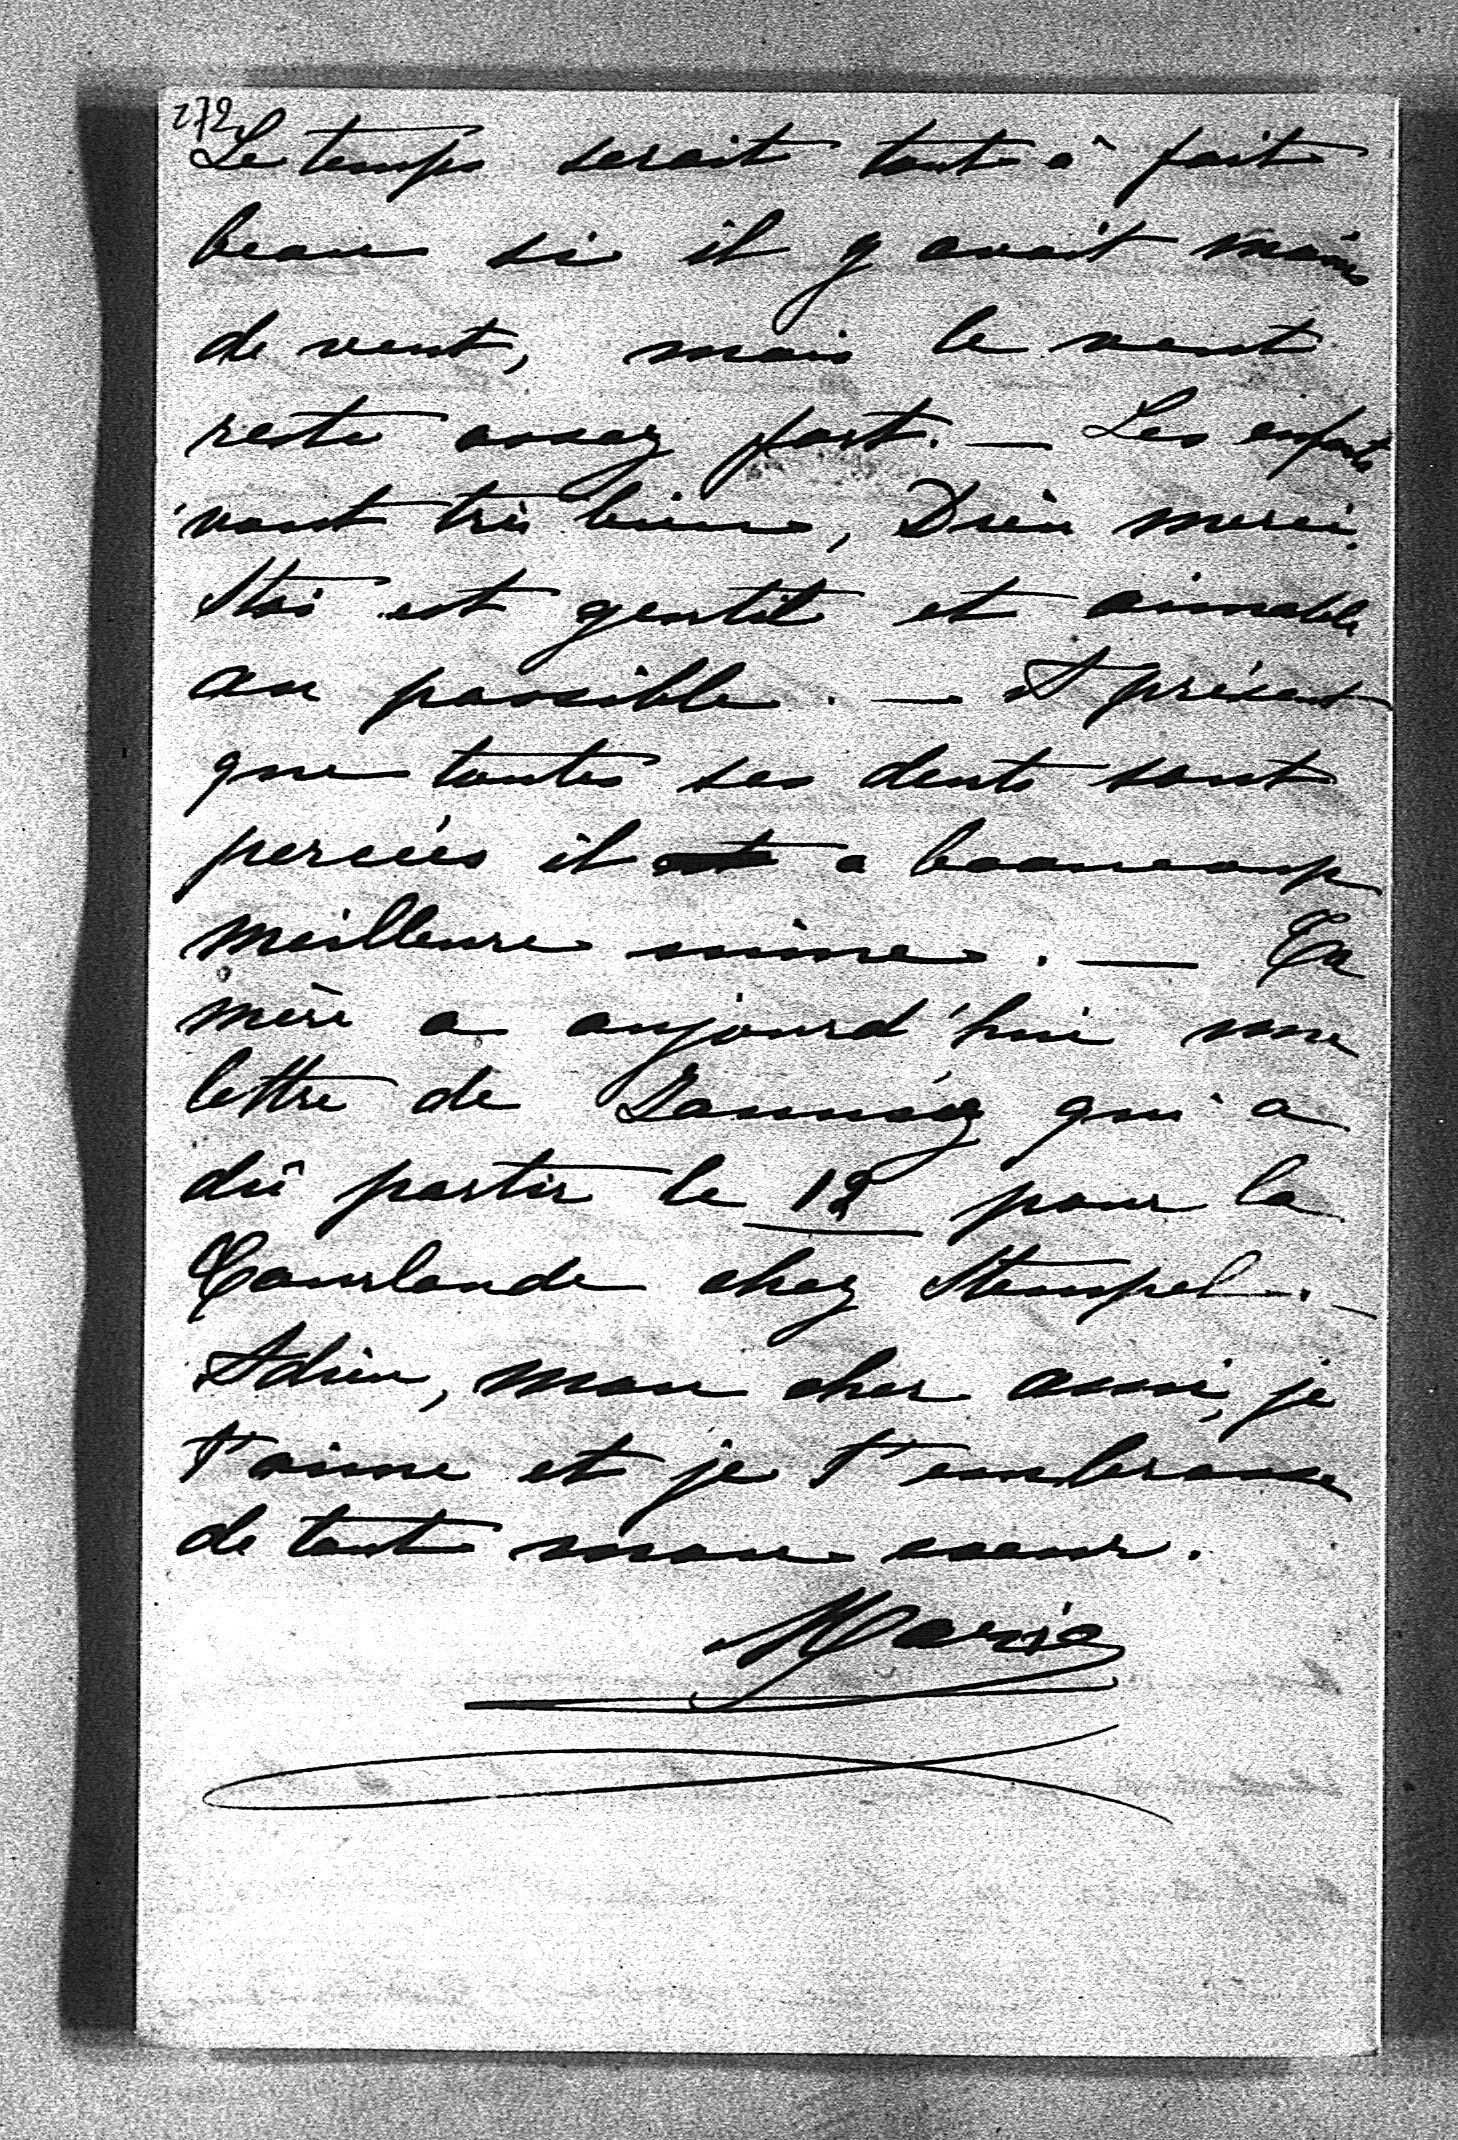 272
Le temps serait tout à fait
beau si il y avait moins
de vent, mais le vent
reste assez fort. — Les enfants
vont très bien, Dieu merci.
est gentil et aimable
au possible. — A présent
que toutes ses dents sont
percées il a beaucoup
meilleure mine. — Ta
mère a aujourd'hui une
lettre de qui a
dû partir le 12 pour la
Courlande chez Stempel. —
Adieu, mon cher ami, je
t'aime et je t'embrasse
de tout mon coeur.
Marie